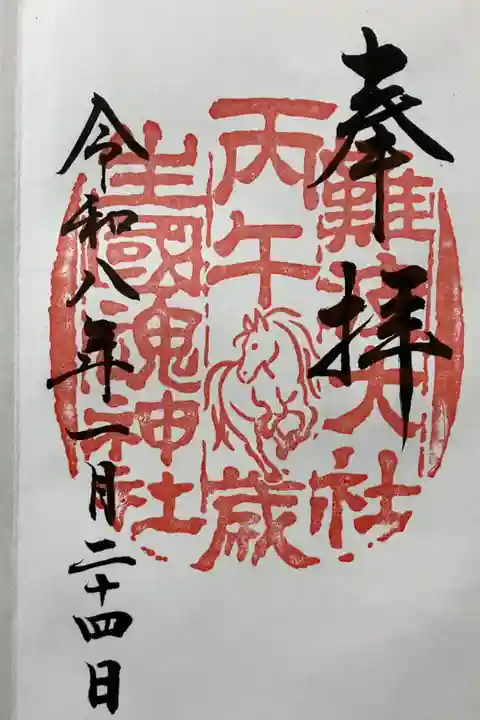 奉拝
難波大社
丙午歳
生國魂神社
令和八年一月二十四日